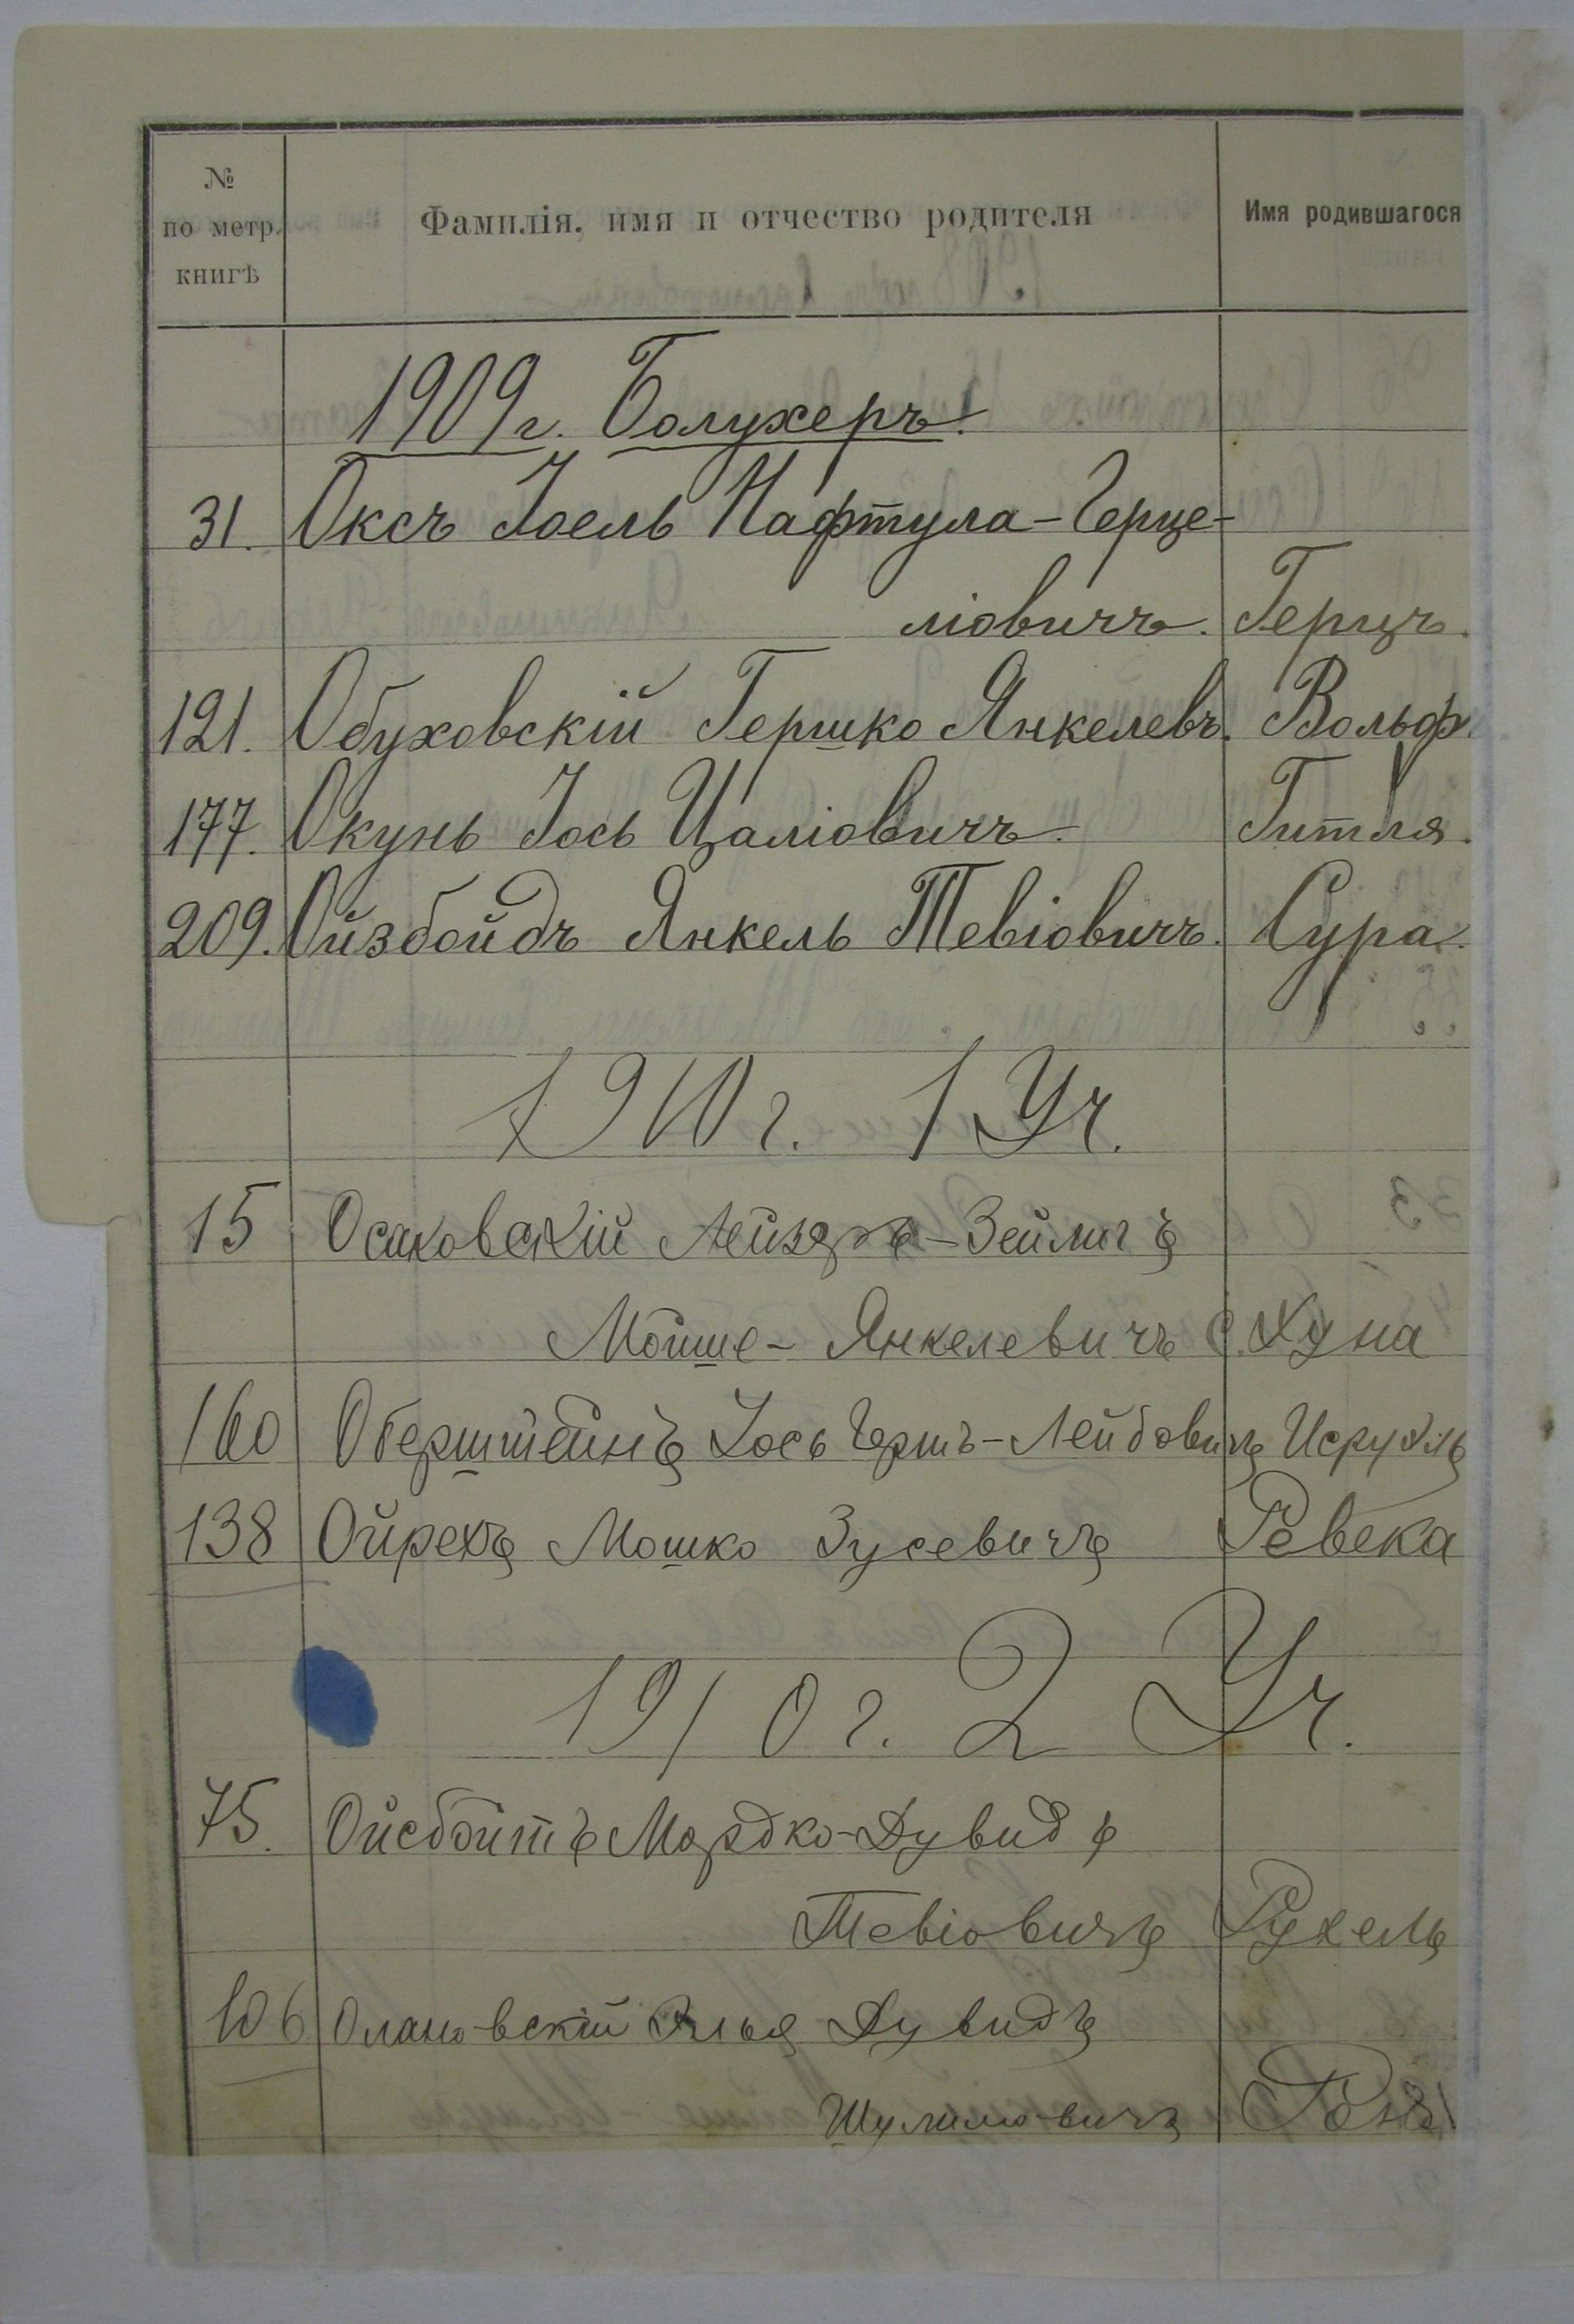 №
по метр.
книгѣ
Фамилія, имя и отчество родителя
Имя родившагося
1909 г. Болухеръ.
31. Оксъ Іоель Нафтула-Герце-
ліовичъ. Герцъ.
121. Обуховскій Гершко Янкелевъ. Вольф.
177. Окунь Іось Цаліовичъ. Гитля.
209. Ойзбойдъ Янкель Тевіовичъ. Сура.
1910 г. 1 Уч.
15 Осаковскій Лейзеръ-Зейлигъ
Мойше-Янкелевичъ С. Хуна
160 Оберштейнъ Іось Герш-Лейбовичъ Исруэль
138 Ойрехъ Мошко Зусевичъ Ревека
1910 г. 2 Уч.
75. Ойсбоитъ Мордко-Дувидъ
Тевіовичъ Рухель
106 Олановскій Элья Дувидъ
Шулимовичъ